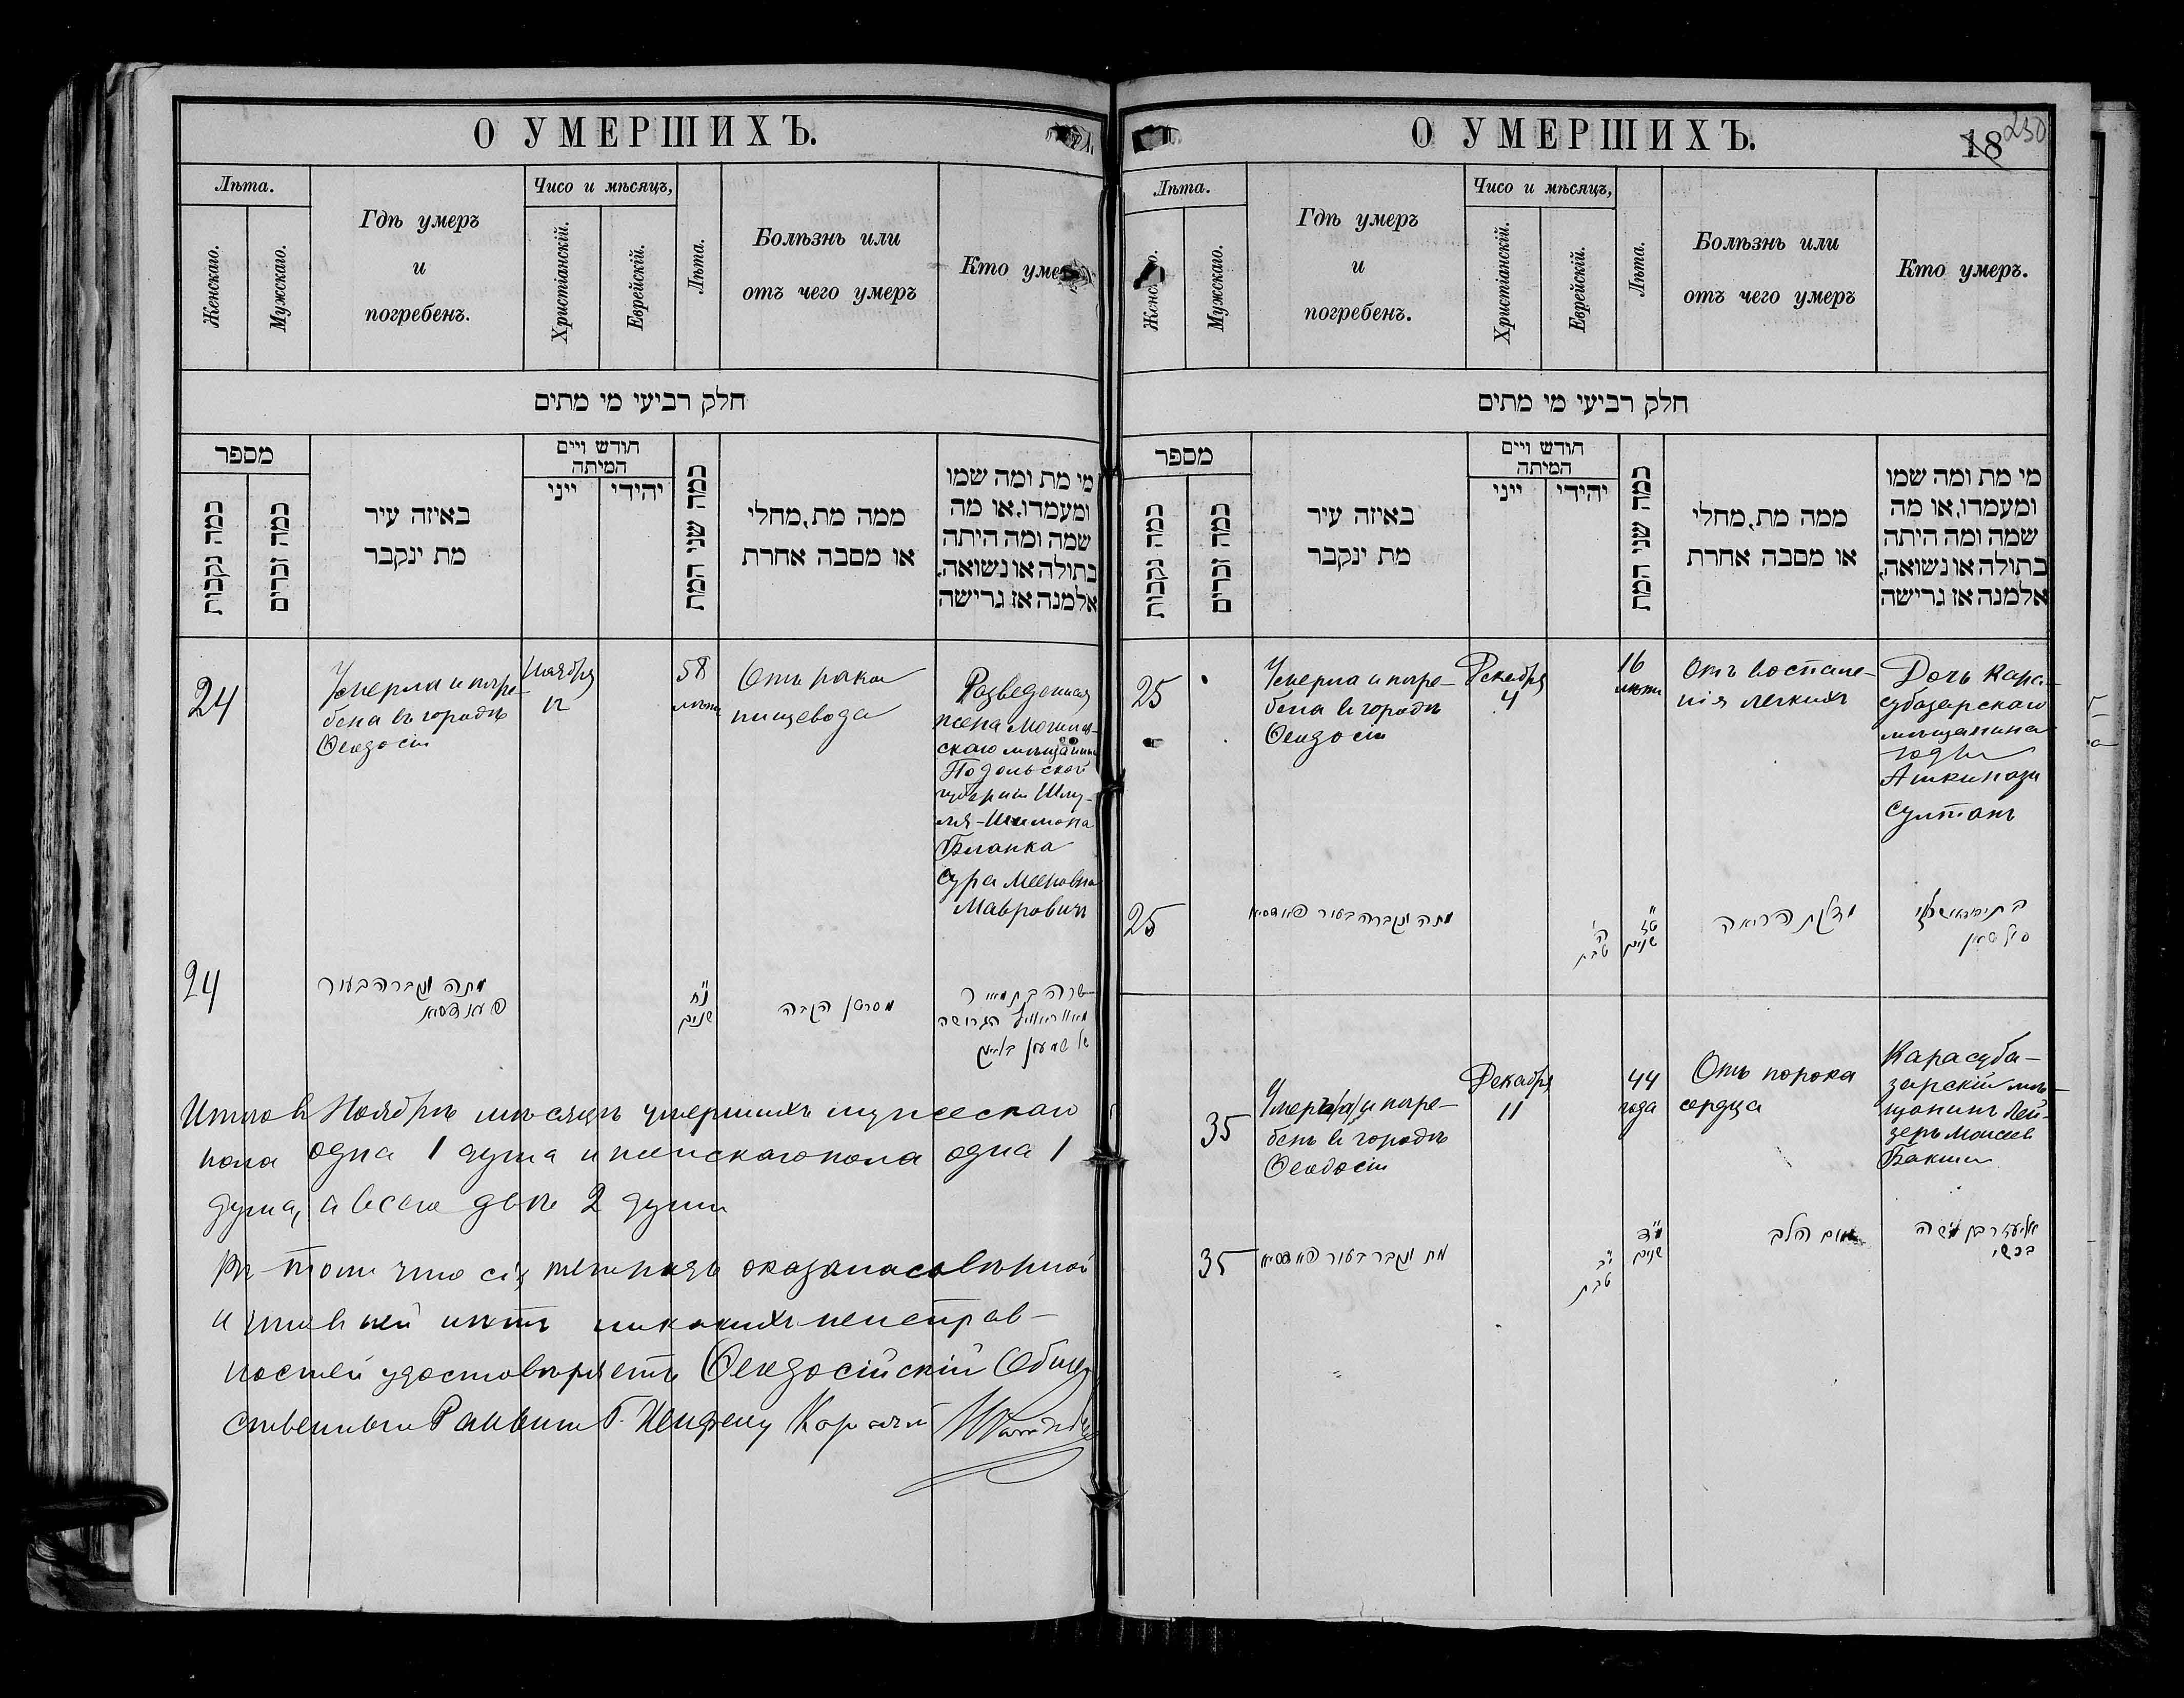 О УМЕРШИХЪ.
Лѣта.
Женскаго.
Мужскаго.
Гдѣ умеръ
и
погребенъ.
Чисо и мѣсяцъ,
Христіанскій.
Еврейскій.
Лѣта.
Болѣзнь или
отъ чего умеръ
Кто умеръ
חלק רביעי מי מתים
מספר
כמה נקבות
כמה זכרים
באיזה עיר
מת ינקבר
חודש ויים
המיתה
ייני
יהידי
כמה שני המת
ממה מת, מחלי
או מסבה אחרת
מי מת ומה שמו
ומעמדו, או מה
שמה ומה היתה
בתולה או נשואה,
אלמנה אז גרישה
24
Умерла и погре-
бена въ городѣ
Ѳеодосіи
Ноября
12
58
лѣтъ
Отъ рака
пищевода
Разведенная
жена Могилев-
скаго мѣщанина
Подольской
губерніи Шму-
ля-Шимона
Бланка
Сура Мееровна
Маврович
24
מתה ונקברה בעיר
פעאדסיא
נ״ח
שנים
מסרטן הקבה
שרה בת מאיר
מאווראוויץ הגרושה
של שמעון בלאנק
Итого въ Ноябрѣ мѣсяцѣ умершихъ мужескаго
пола одна 1 душа и женскаго пола одна 1
душа, а всего двѣ 2 души
Въ томъ что сія тетрадь оказалась вѣрной
и что въ ней нѣтъ никакихъ неисправ-
ностей удостовѣряетъ Ѳеодосійскій Обще-
ственный Раввинъ
О УМЕРШИХЪ.
18
230
Лѣта.
Женскаго.
Мужскаго.
Гдѣ умеръ
и
погребенъ.
Чисо и мѣсяцъ,
Христіанскій.
Еврейскій.
Лѣта.
Болѣзнь или
отъ чего умеръ
Кто умеръ.
חלק רביעי מי מתים
מספר
כמה נקבות
כמה זכרים
באיזה עיר
מת ינקבר
חודש ויים
המיתה
ייני
יהידי
כמה שני המת
ממה מת, מחלי
או מסבה אחרת
מי מת ומה שמו
ומעמדו, או מה
שמה ומה היתה
בתולה או נשואה,
אלמנה אז גרישה
25
Умерла и погре-
бена въ городѣ
Ѳеодосіи
Декабря
4
16
лѣтъ
Отъ воспале-
нія легкихъ
Дочь Кара-
субазарскаго
мѣщанина
Ашкинази
Султанъ
25
מתה ונקברה בעיר פאדסיא
ה׳
טבת
ט״ז
שנים
דלקת הריאה
בת
סולטאן
35
Умеръ и погре-
бенъ въ городѣ
Ѳеодосіи
Декабря
11
44
года
Отъ порока
сердца
Карасуба-
зарскій мѣ-
щанинъ Лей-
зеръ Моисеевъ
Бакши
35
מת ונקבר בעיר פאדסיא
י״ב
טבת
מ״ד
שנים
מום הלב
אליעזר בן משה
בכשי